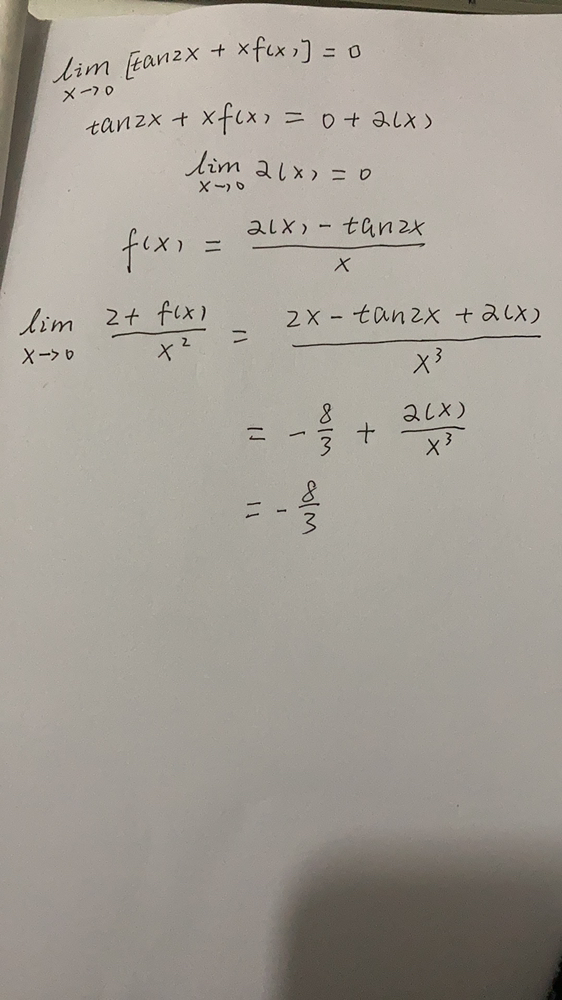 lim x→0 [tan2x + xf(x)] = 0
tan2x + xf(x) = 0 + 2(x)
lim x→0 2(x) = 0
f(x) = (2(x) - tan2x) / x
lim x→0 (2 + f(x)) / x² = (2x - tan2x + 2(x)) / x³
= - 8/3 + 2(x)/x³
= - 8/3